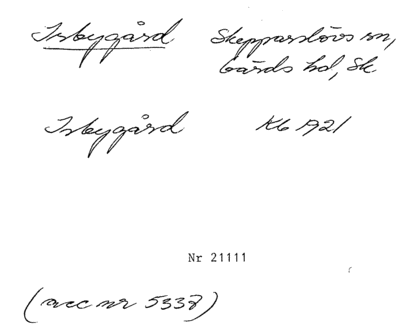 Isbygård Skepparslövs sn,
Gärds hd, Sk
Isbygård Kb 1921
Nr 21111
(acc nr 5338)